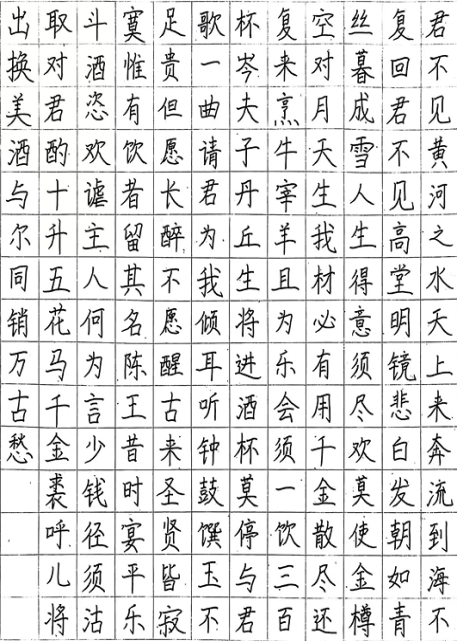 君不见黄河之水天上来奔流到海不
复回君不见高堂明镜悲白发朝如青
丝暮成雪人生得意须尽欢莫使金樽
空对月天生我材必有用千金散尽还
复来烹牛宰羊且为乐会须一饮三百
杯岑夫子丹丘生将进酒杯莫停与君
歌一曲请君为我倾耳听钟鼓馔玉不
足贵但愿长醉不愿醒古来圣贤皆寂
寞惟有饮者留其名陈王昔时宴平乐
斗酒恣欢谑主人何为言少钱径须沽
取对君酌十升五花马千金裘呼儿将
出换美酒与尔同销万古愁